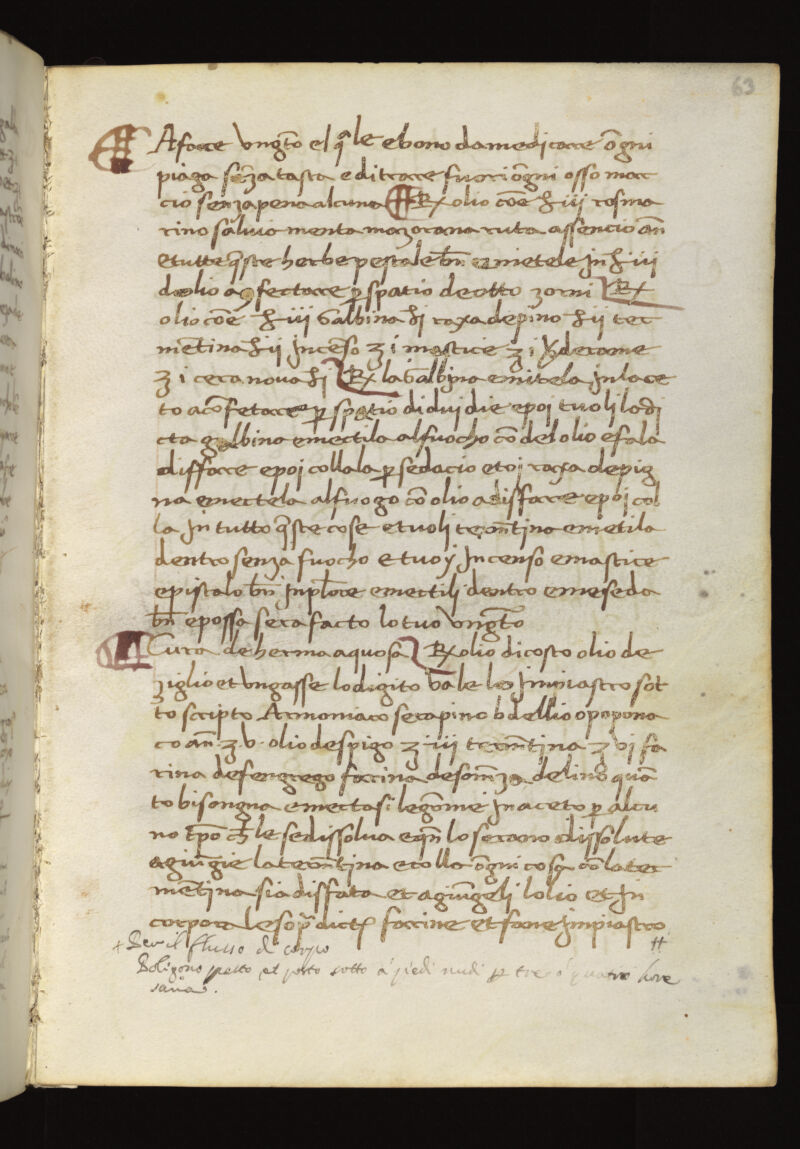 63
A fare ungto el qle e bono da medicare ogni
piaga senza tasta e di trare fuori ogni osso mar
cio senza pena alcuna Rx olio coe ℔ iiii rosma
rino salvia menta mazorana ruta assencio an
e tutte queste herbe pestale bn e mietele in ℔ iiii
d olio a fectare p spatio de otto zorni Rx
olio coe ℔ iii galbina ℔ i raxa de pino ℔ ii ter
mentina ℔ ii incenso ʒ i mastice ʒ i derame
ʒ i cera nova ℔ i Rx la galbina e mitela in lace
to a confetare p spatio di dui die e poi tuoli lo di
cta galbina e mectila al fuocho co del olio e fala
diffare e poi collala p sedacio e toi raxa de pig
na e mectela al fuogo co olio a disfare e poi col
la in tutto queste cose e tuoli terontina e metila
dentro senza fuocho e tuoy incenso e mastice
e pistalo bn in plvre e mectili dentro e meseda
bn e possa sera facto lo tuo ungto
Cura de herma aquosa Rx olio di costo olio de
ziglio et ungasse lo digito vale lo impiastro sot
to scripto Armoniaco serapino bdellio opopona
co an ʒ v olio de spigo ʒ iii terontina ʒ vi fa
rina de fengrego farina de somenza de lino qua
to bisongna e mectasi le gome in aceto p alcu
no tpo ch le se dissolva e qn lo serano dissolute
agiungie la terontina e colla ogni cosa con la ter
mentina sia disfata et agiungeli lolio et in
corpora le sopra dicte farine et fane impiastro
+ Per il flusso di corpo #
Poligono pesto et posto sotto a piedi nudi p tre o quatro hore
sana.